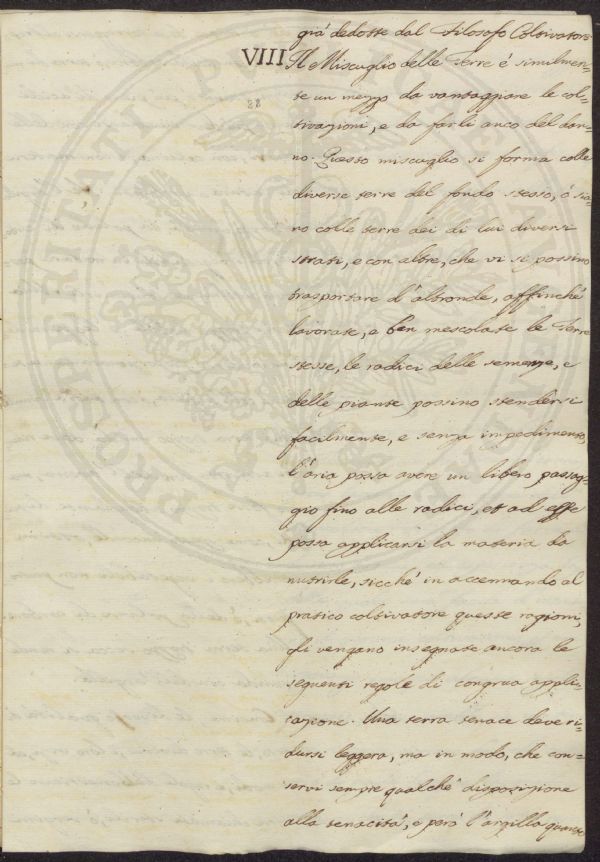 già dedotte dal Filosofo Coltivatore
VIII. Il Miscuglio delle Terre é similmen=
88
te un mezzo da vantaggiare le col=
tivazioni, e da farli anco del dan=
no. Questo miscuglio si forma colle
diverse terre del fondo stesso, ó sia=
no colle terre dei di lui diversi
strati, e con altre, che vi si possino
trasportare d'altronde, affinché
lavorate, e ben mescolate le Terre
stesse, le radici delle semenze, e
delle piante possino stendersi
facilmente, e senza impedimento,
l'aria possa avere un libero passag=
gio fino alle radici, et ad esse
possa applicarsi la materia da
nutrirle, sicché in accennando al
pratico coltivatore queste ragioni,
gli vengano insegnate ancora le
seguenti regole di congrua appli=
cazione. Una terra tenace deve ri=
dursi leggera, ma in modo, che con=
servi sempre qualché disposizione
alla tenacitá, e però l'argilla quante